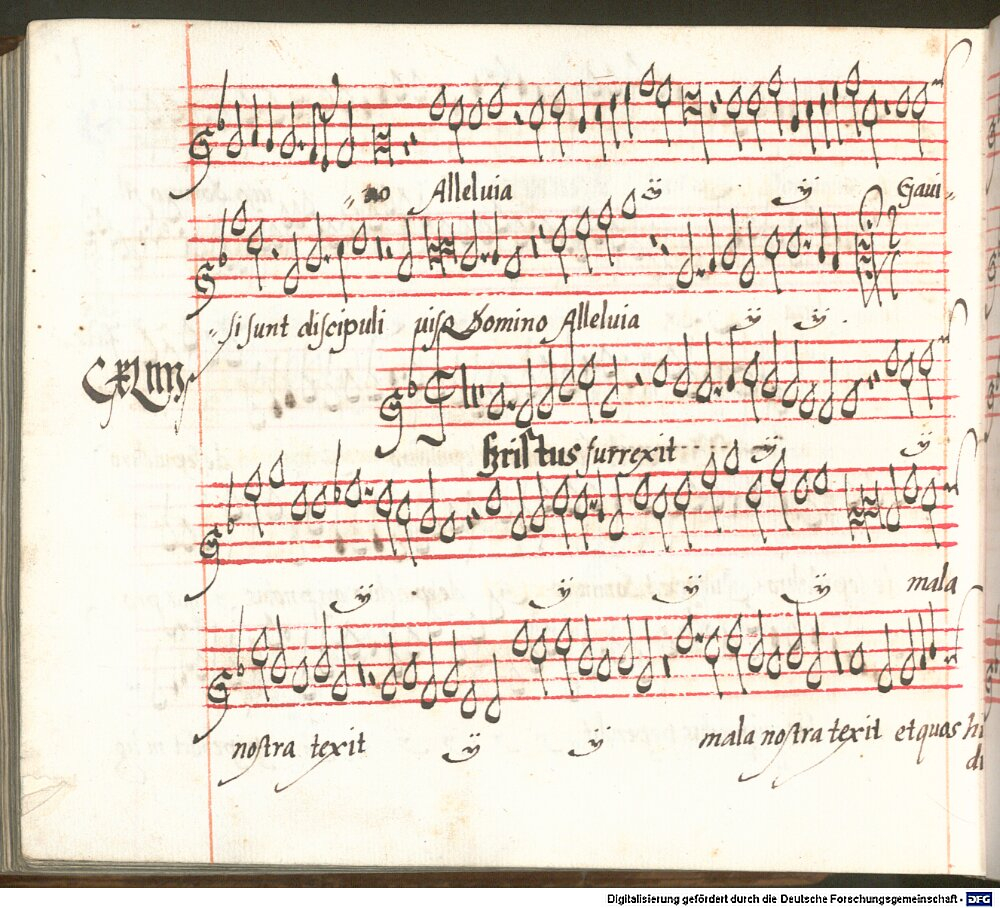 no Alleluia ij ij Gaui-
si sunt discipuli viso Domino Alleluia ij ij.
Christus surrexit ij ij
ij ij ij ij mala
nostra texit ij ij mala nostra texit et quos hi
di
Digitalisierung gefördert durch die Deutsche Forschungsgemeinschaft - DFG